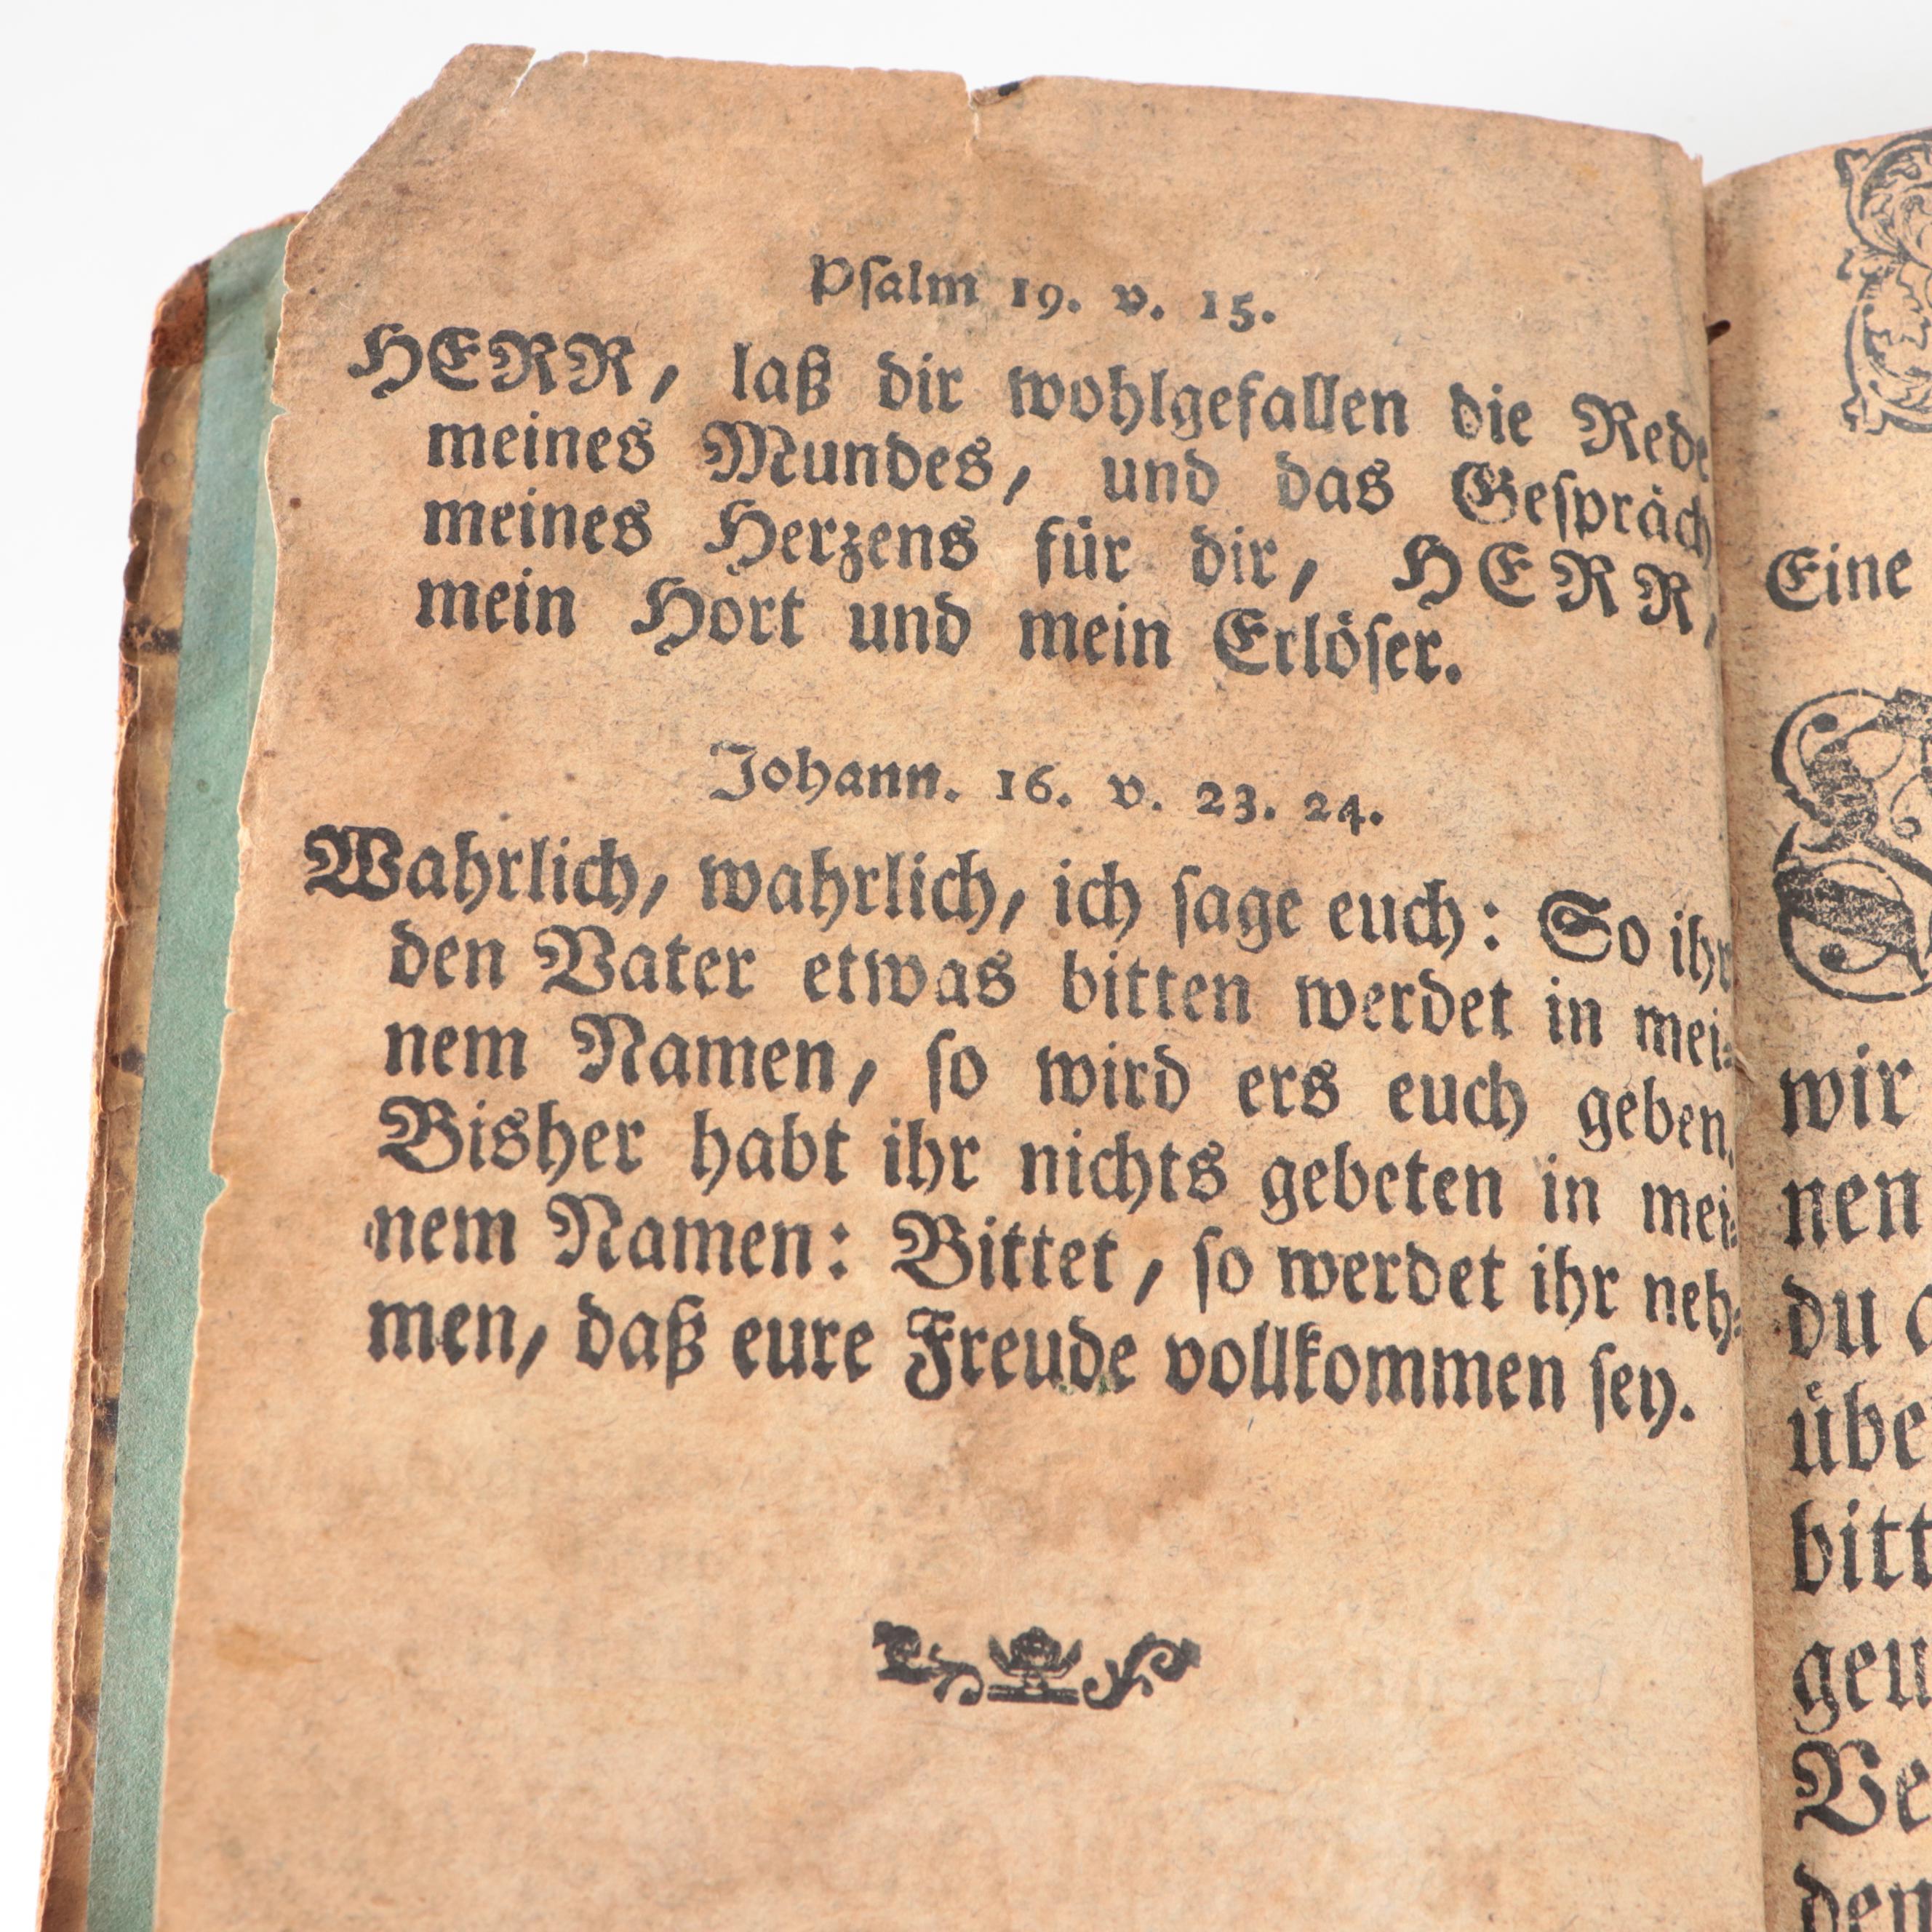 Psalm 19. v. 15.
HERR, laß dir wohlgefallen die Rede
meines Mundes, und das Gespräch
meines Herzens für dir, HERR,
mein Hort und mein Erlöser.
Johann. 16. v. 23. 24.
Wahrlich, wahrlich, ich sage euch: So ihr
den Vater etwas bitten werdet in mei⸗
nem Namen, so wird ers euch geben.
Bisher habt ihr nichts gebeten in mei⸗
nem Namen: Bittet, so werdet ihr neh⸗
men, daß eure Freude vollkommen sey.
Eine
wir
nen
du